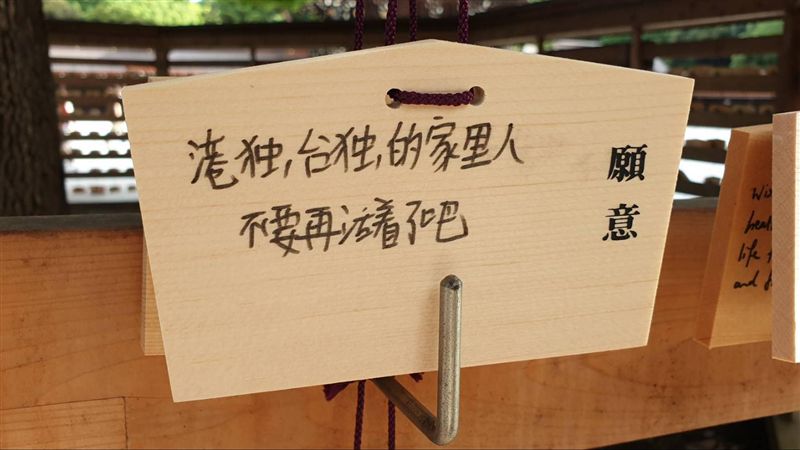 港独,台独,的家里人
不要再活着了吧
願意
life
and